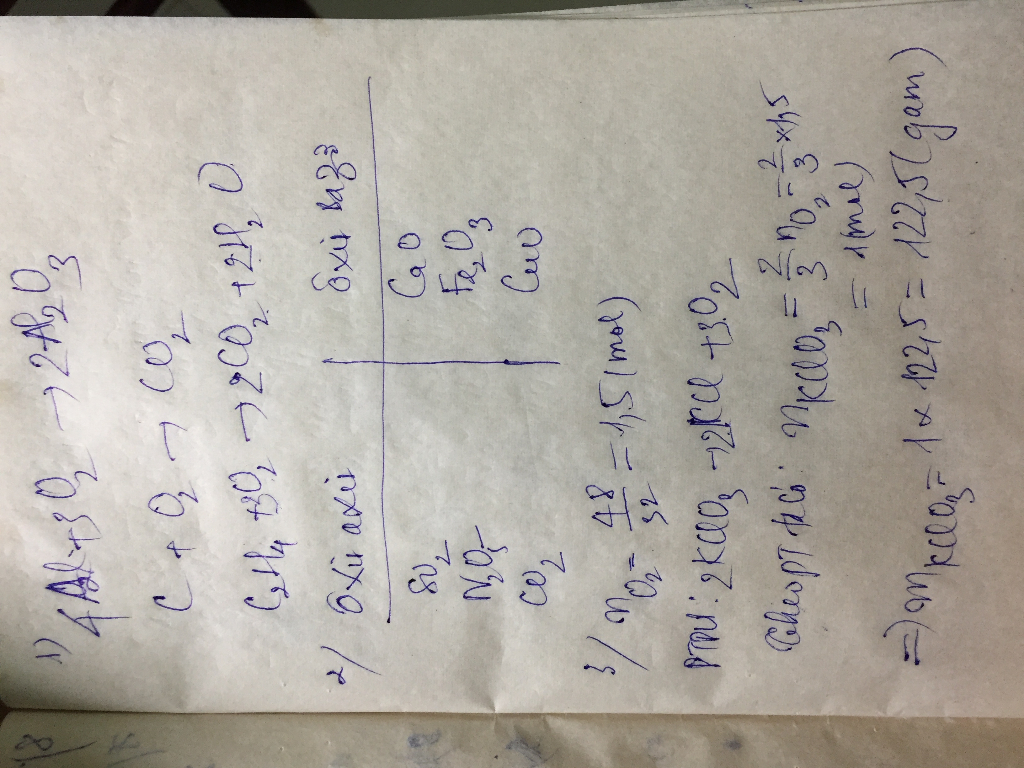 1) 4Al + 3O2 → 2Al2O3
C + O2 → CO2
C2H4 + 3O2 → 2CO2 + 2H2O
2/ Oxit axit Oxit bazơ
SO2 CaO
N2O5 Fe2O3
CO2 CuO
3/ nO2 = 48/32 = 1,5 (mol)
PTPƯ: 2KClO3 → 2KCl + 3O2
theo PT có: nKClO3 = 2/3 nO2 = 2/3 x 1,5
= 1 (mol)
=> mKClO3 = 1 x 122,5 = 122,5 (gam)